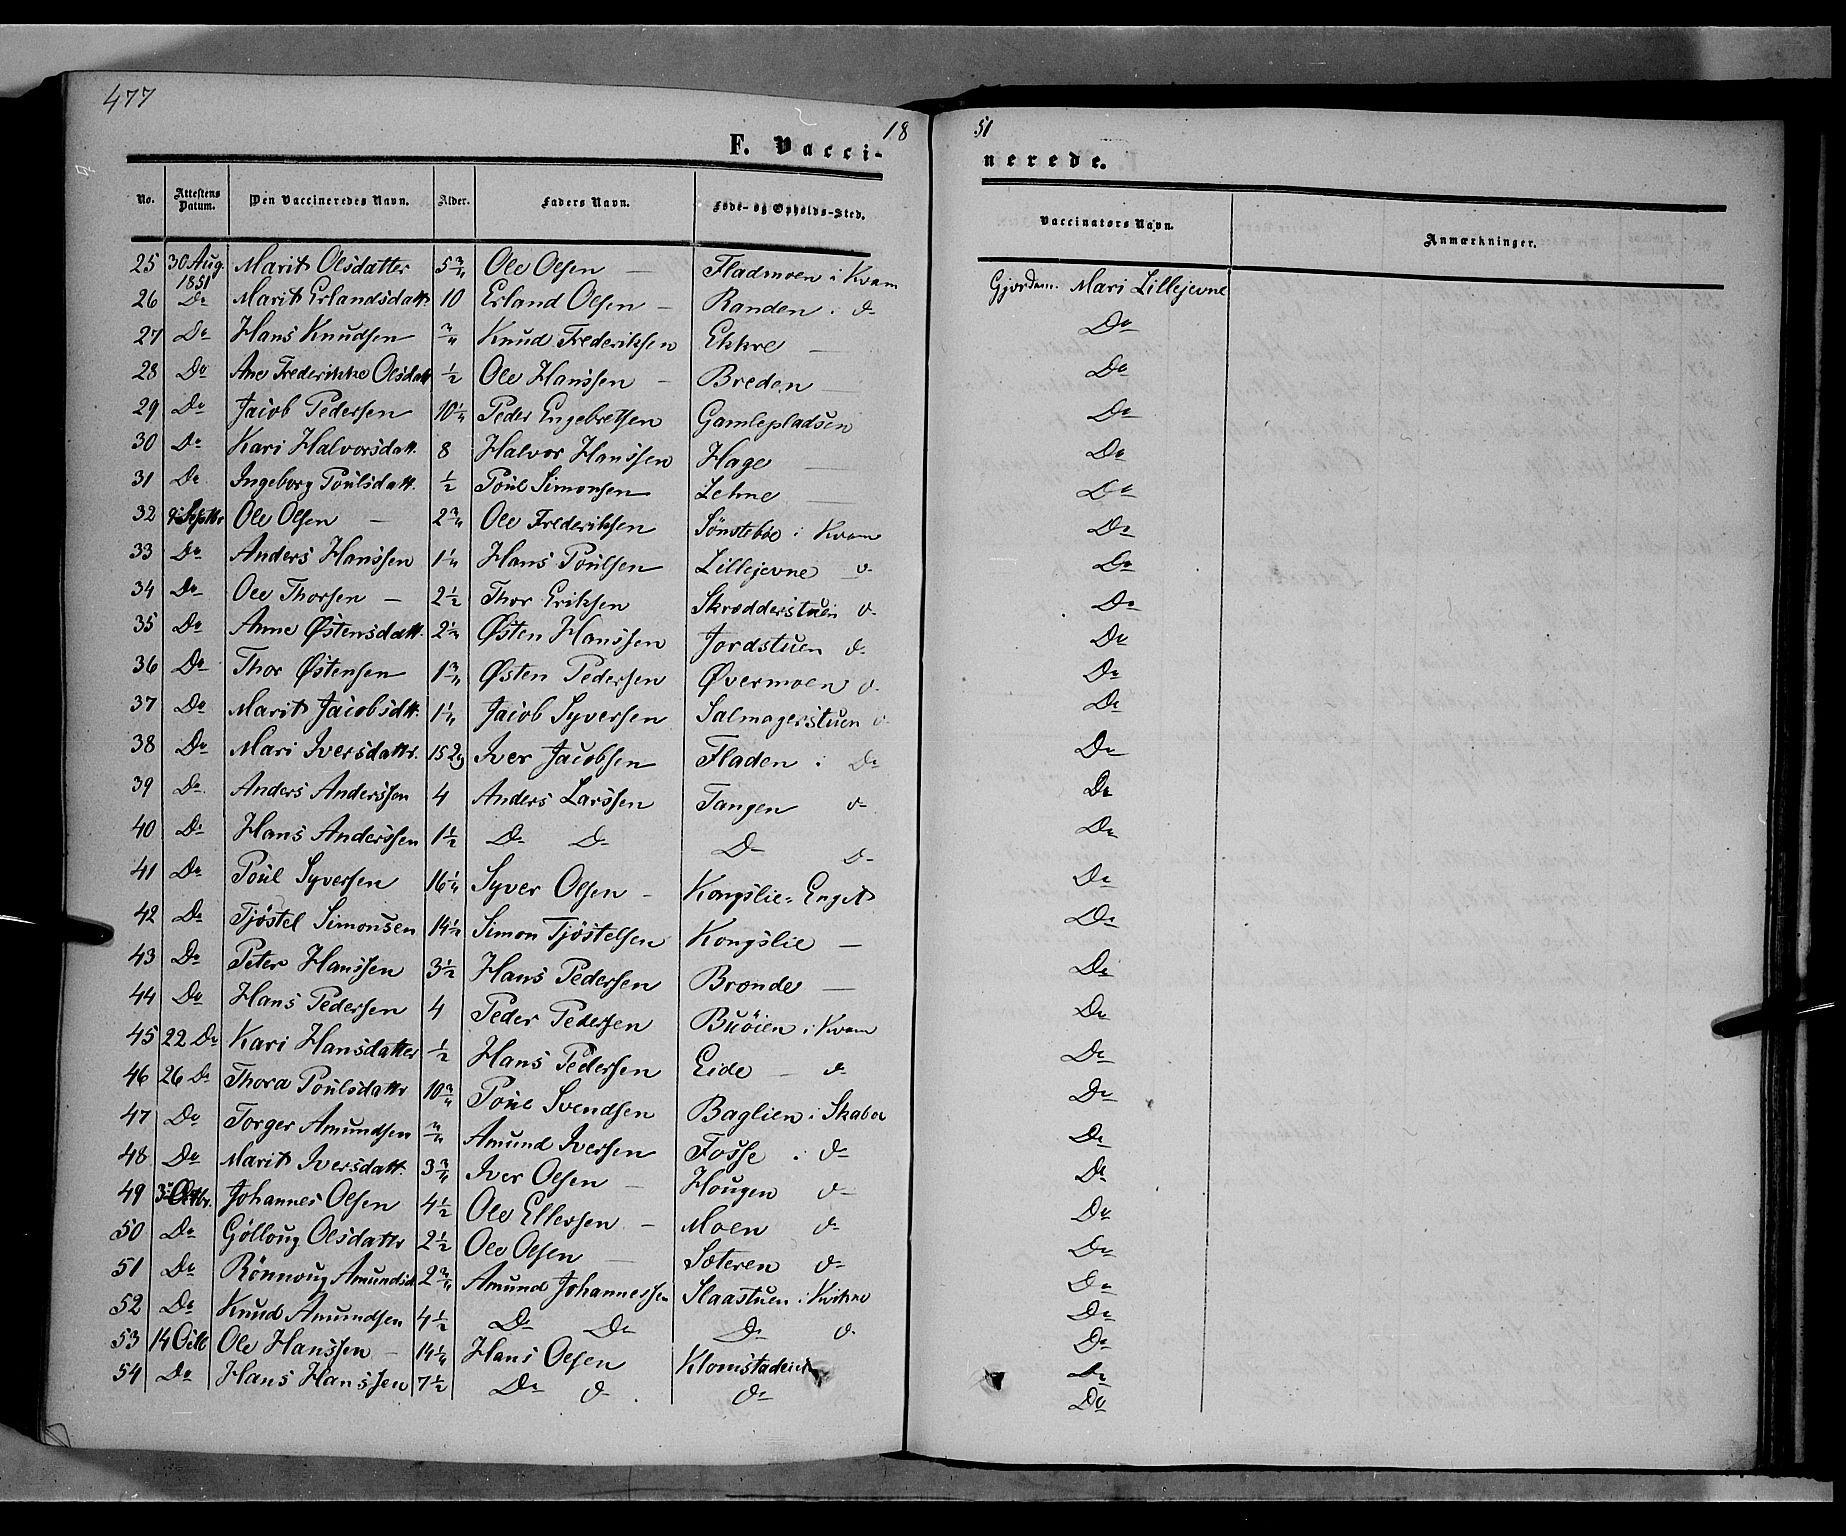 477
18 51
F. Vacci- nerede.
No. Attestens Datum. Den Vaccineredes Navn. Alder. Faders Navn. Føde- og Opholds-Sted. Vaccinators Navn. Anmærkninger.
25 30 Aug. 1851 Marit Olsdatter 5 3/4 Ole Olsen — Fladmoen i Kvam Gjordem. Mari Lillejevne
26 Do Marit Erlandsdatt. 10 Erland Olsen — Randen i do Do
27 Do Hans Knudsen 3/4 Knud Frederiksen Ekkre — Do
28 Do Ane Frederikke Olsdatt 1/2 Ole Hanssen — Breden — Do
29 Do Jacob Pedersen 10 1/4 Peder Engebretsen Gamlepladsen Do
30 Do Kari Halvorsdatt. 8 Halvor Hanssen Hage — Do
31 Do Ingeborg Poulsdatt. 1/2 Poul Simonsen Lehne — Do
32 9 Septbr Ole Olsen — 2 3/4 Ole Frederiksen Sønstebøe i Kvam Do
33 Do Anders Hanssen 1 1/4 Hans Poulsen Lillejevne do Do
34 Do Ole Thorsen — 2 1/2 Thor Eriksen Skrædderstuen do Do
35 Do Anne Østensdatt. 2 1/4 Østen Hanssen Jordstuen do Do
36 Do Thor Østensen 1 3/4 Østen Pedersen Øvermoen do Do
37 Do Marit Jacobsdtt. 1 1/4 Jacob Syversen Salmagerstuen do Do
38 Do Mari Iversdattr. 15 Iver Jacobsen Fladen i Do Do
39 Do Anders Anderssen 4 Anders Larssen Tangen do Do
40 Do Hans Anderssen 1 1/2 Do Do Do Do Do
41 Do Poul Syversen 16 1/4 Syver Olsen — Kongslie-Enget Do
42 Do Tjøstel Simonsen 14 1/2 Simon Tjøstelsen Kongslie — Do
43 Do Peter Hanssen 3 1/2 Hans Pedersen Brænde — Do
44 Do Hans Pedersen 4 Peder Pedersen Buøien i Kvam Do
45 22 Do Kari Hansdatter 1/2 Hans Pedersen Eide — do Do
46 26 Do Thora Poulsdattr 10 3/4 Poul Svendsen Baglien i Skaboe Do
47 Do Torger Amundsen 3/4 Amund Iversen Fosse i do Do
48 Do Marit Iversdatt. 3 3/4 Iver Olsen — Hougen do Do
49 3 Octbr. Johannes Olsen 4 1/2 Ole Ellersen — Moen do Do
50 Do Gølloug Olsdattr 2 1/2 Ole Olsen — Sæteren do Do
51 Do Rønnoug Amundsd 2 3/4 Amund Johannessen Slaastuen i Kvikne Do
52 Do Knud Amundsen 4 1/2 Do Do Do do Do
53 14 Octb Ole Hanssen — 14 1/4 Hans Olsen Klomstadeie Do
54 Do Hans Hanssen 7 1/2 Do do do Do
Do